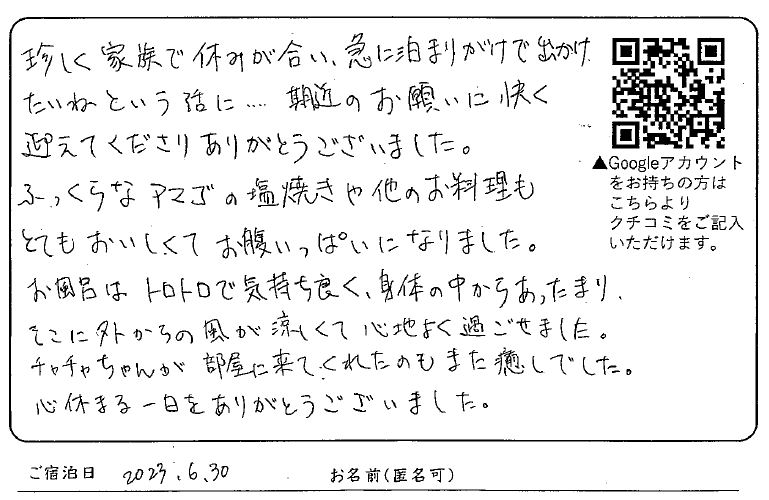 珍しく家族で休みが合い、急に泊まりがけで出かけ
たいねという話に…. 期近のお願いに快く
迎えてくださりありがとうございました。
ふっくらなアマゴの塩焼きや他のお料理も
とてもおいしくてお腹いっぱいになりました。
お風呂はトロトロで気持ち良く、身体の中からあったまり、
そこに外からの風が涼しくて心地よく過ごせました。
チャチャちゃんが部屋に来てくれたのもまた癒しでした。
心休まる一日をありがとうございました。
▲Googleアカウント
をお持ちの方は
こちらより
クチコミをご記入
いただけます。
ご宿泊日 2023.6.30 お名前(匿名可)